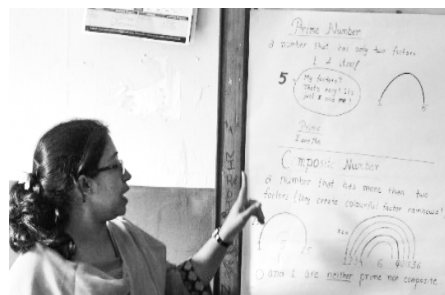 Prime Number
a number that has only two factors
1 & itself
5
My factors?
That's easy! It's
just 5 and me!
Prime
Composite Number
a number that has more than two
factors (they create colourful factor rainbows!
0 and 1 are neither prime nor composite